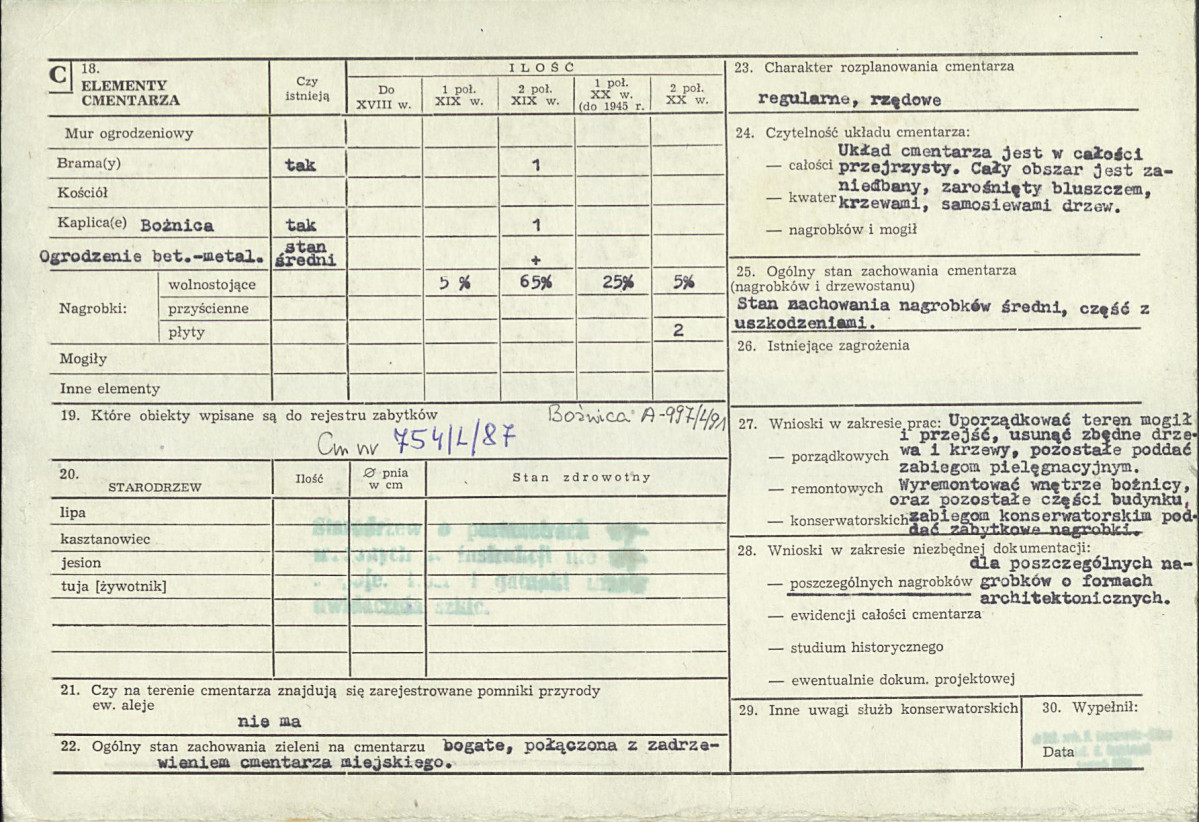 C 18.
ELEMENTY
CMENTARZA
Czy
istnieją
ILOŚĆ
Do
XVIII w.
1 poł.
XIX w.
2 poł.
XIX w.
1 poł.
XX w.
(do 1945 r.
2 poł.
XX w.
Mur ogrodzeniowy
Brama(y) tak 1
Kościół
Kaplica(e) Bożnica tak 1
Ogrodzenie bet.-metal. stan
średni +
Nagrobki:
wolnostojące 5 % 65% 25% 5%
przyścienne
płyty 2
Mogiły
Inne elementy
19. Które obiekty wpisane są do rejestru zabytków Bożnica A-997/L/91
Cm nr 754/L/87
20.
STARODRZEW
Ilość
Ø pnia
w cm
Stan zdrowotny
lipa
kasztanowiec
jesion
tuja [żywotnik]
Starodrzew o
i gatunki
szkic.
21. Czy na terenie cmentarza znajdują się zarejestrowane pomniki przyrody
ew. aleje
nie ma
22. Ogólny stan zachowania zieleni na cmentarzu bogate, połączona z zadrze-
wieniem cmentarza miejskiego.
23. Charakter rozplanowania cmentarza
regularne, rzędowe
24. Czytelność układu cmentarza:
Układ cmentarza jest w całości
— całości przejrzysty. Cały obszar jest za-
niedbany, zarośnięty bluszczem,
— kwater krzewami, samosiewami drzew.
— nagrobków i mogił
25. Ogólny stan zachowania cmentarza
(nagrobków i drzewostanu)
Stan zachowania nagrobków średni, część z
uszkodzeniami.
26. Istniejące zagrożenia
27. Wnioski w zakresie prac: Uporządkować teren mogił
i przejść, usunąć zbędne drze-
— porządkowych wa i krzewy, pozostałe poddać
zabiegom pielęgnacyjnym.
— remontowych Wyremontować wnętrze bożnicy,
oraz pozostałe części budynku,
— konserwatorskich zabiegom konserwatorskim pod-
dać zabytkowe nagrobki.
28. Wnioski w zakresie niezbędnej dokumentacji:
dla poszczególnych na-
— poszczególnych nagrobków grobków o formach
architektonicznych.
— ewidencji całości cmentarza
— studium historycznego
— ewentualnie dokum. projektowej
29. Inne uwagi służb konserwatorskich
30. Wypełnił:
Data